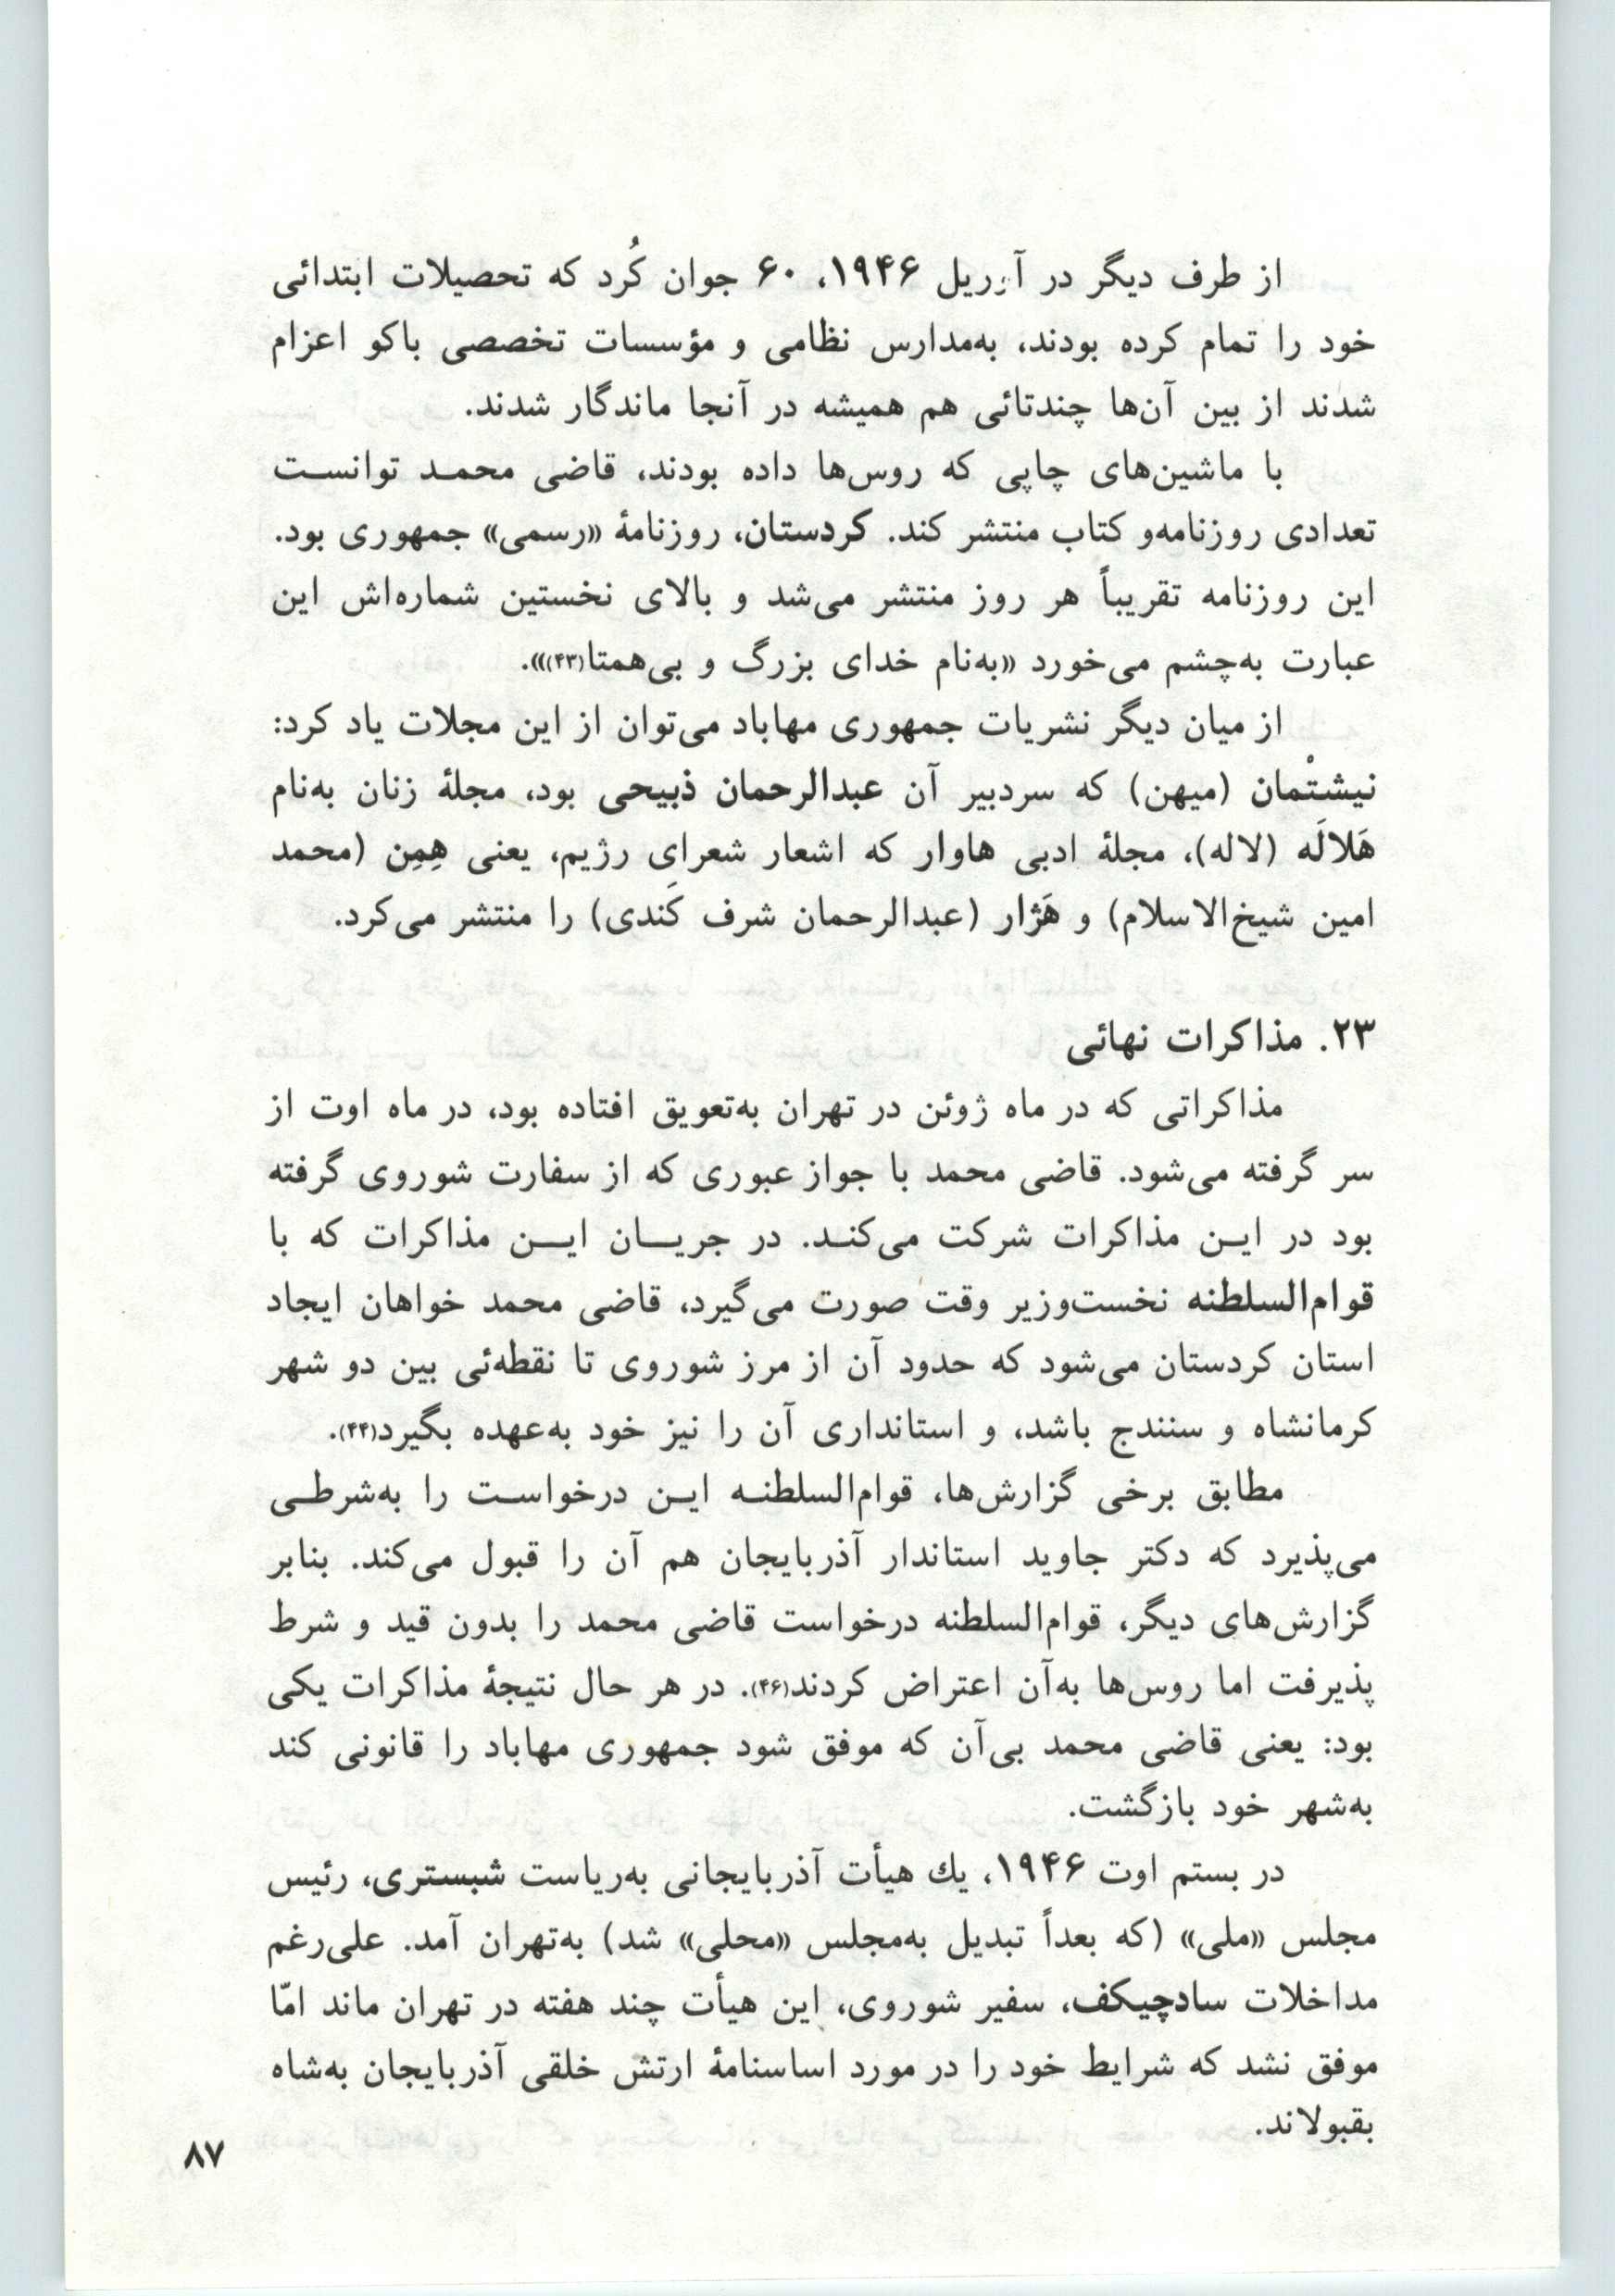 از طرف دیگر در آوریل ۱۹۴۶، ۶۰ جوان کُرد که تحصیلات ابتدائی
خود را تمام کرده بودند، به‌مدارس نظامی و مؤسسات تخصصی باکو اعزام
شدند از بین آن‌ها چندتائی هم همیشه در آنجا ماندگار شدند.
با ماشین‌های چاپی که روس‌ها داده بودند، قاضی محمد توانست
تعدادی روزنامه‌و کتاب منتشر کند. کردستان، روزنامهٔ «رسمی» جمهوری بود.
این روزنامه تقریباً هر روز منتشر می‌شد و بالای نخستین شماره‌اش این
عبارت به‌چشم می‌خورد «به‌نام خدای بزرگ و بی‌همتا(۴۳)».
از میان دیگر نشریات جمهوری مهاباد می‌توان از این مجلات یاد کرد:
نیشتْمان (میهن) که سردبیر آن عبدالرحمان ذبیحی بود، مجلهٔ زنان به‌نام
هَلالَه (لاله)، مجلهٔ ادبی هاوار که اشعار شعرای رژیم، یعنی هِمِن (محمد
امین شیخ‌الاسلام) و هَژار (عبدالرحمان شرف کَندی) را منتشر می‌کرد.
۲۳. مذاکرات نهائی
مذاکراتی که در ماه ژوئن در تهران به‌تعویق افتاده بود، در ماه اوت از
سر گرفته می‌شود. قاضی محمد با جواز عبوری که از سفارت شوروی گرفته
بود در این مذاکرات شرکت می‌کند. در جریان این مذاکرات که با
قوام‌السلطنه نخست‌وزیر وقت صورت می‌گیرد، قاضی محمد خواهان ایجاد
استان کردستان می‌شود که حدود آن از مرز شوروی تا نقطه‌ئی بین دو شهر
کرمانشاه و سنندج باشد، و استانداری آن را نیز خود به‌عهده بگیرد(۴۴).
مطابق برخی گزارش‌ها، قوام‌السلطنه این درخواست را به‌شرطی
می‌پذیرد که دکتر جاوید استاندار آذربایجان هم آن را قبول می‌کند. بنابر
گزارش‌های دیگر، قوام‌السلطنه درخواست قاضی محمد را بدون قید و شرط
پذیرفت اما روس‌ها به‌آن اعتراض کردند(۴۶). در هر حال نتیجهٔ مذاکرات یکی
بود: یعنی قاضی محمد بی‌آن که موفق شود جمهوری مهاباد را قانونی کند
به‌شهر خود بازگشت.
در بستم اوت ۱۹۴۶، یك هیأت آذربایجانی به‌ریاست شبستری، رئیس
مجلس «ملی» (که بعداً تبدیل به‌مجلس «محلی» شد) به‌تهران آمد. علی‌رغم
مداخلات سادچیکف، سفیر شوروی، این هیأت چند هفته در تهران ماند امّا
موفق نشد که شرایط خود را در مورد اساسنامهٔ ارتش خلقی آذربایجان به‌شاه
بقبولاند.
۸۷